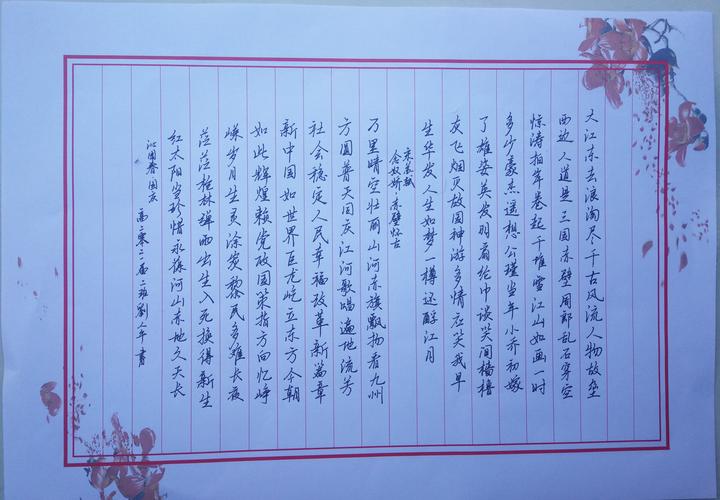 大江东去浪淘尽千古风流人物故垒
西边人道是三国赤壁周郎乱石穿空
惊涛拍岸卷起千堆雪江山如画一时
多少豪杰遥想公瑾当年小乔初嫁
了雄姿英发羽扇纶巾谈笑间樯橹
灰飞烟灭故国神游多情应笑我早
生华发人生如梦一樽还酹江月
宋苏轼
念奴娇 赤壁怀古
万里晴空壮丽山河赤旗飘扬看九州
方圆普天国庆江河歌唱遍地流芳
社会稳定人民幸福改革新篇章
新中国如世界巨龙屹立东方今朝
如此辉煌赖党政国策指方向忆峥
嵘岁月生灵涂炭黎民多难长夜
茫茫枪林弹雨出生入死换得新生
红太阳珍惜永葆河山赤地久天长
沁园春 国庆
高二零二一届二班劉 书